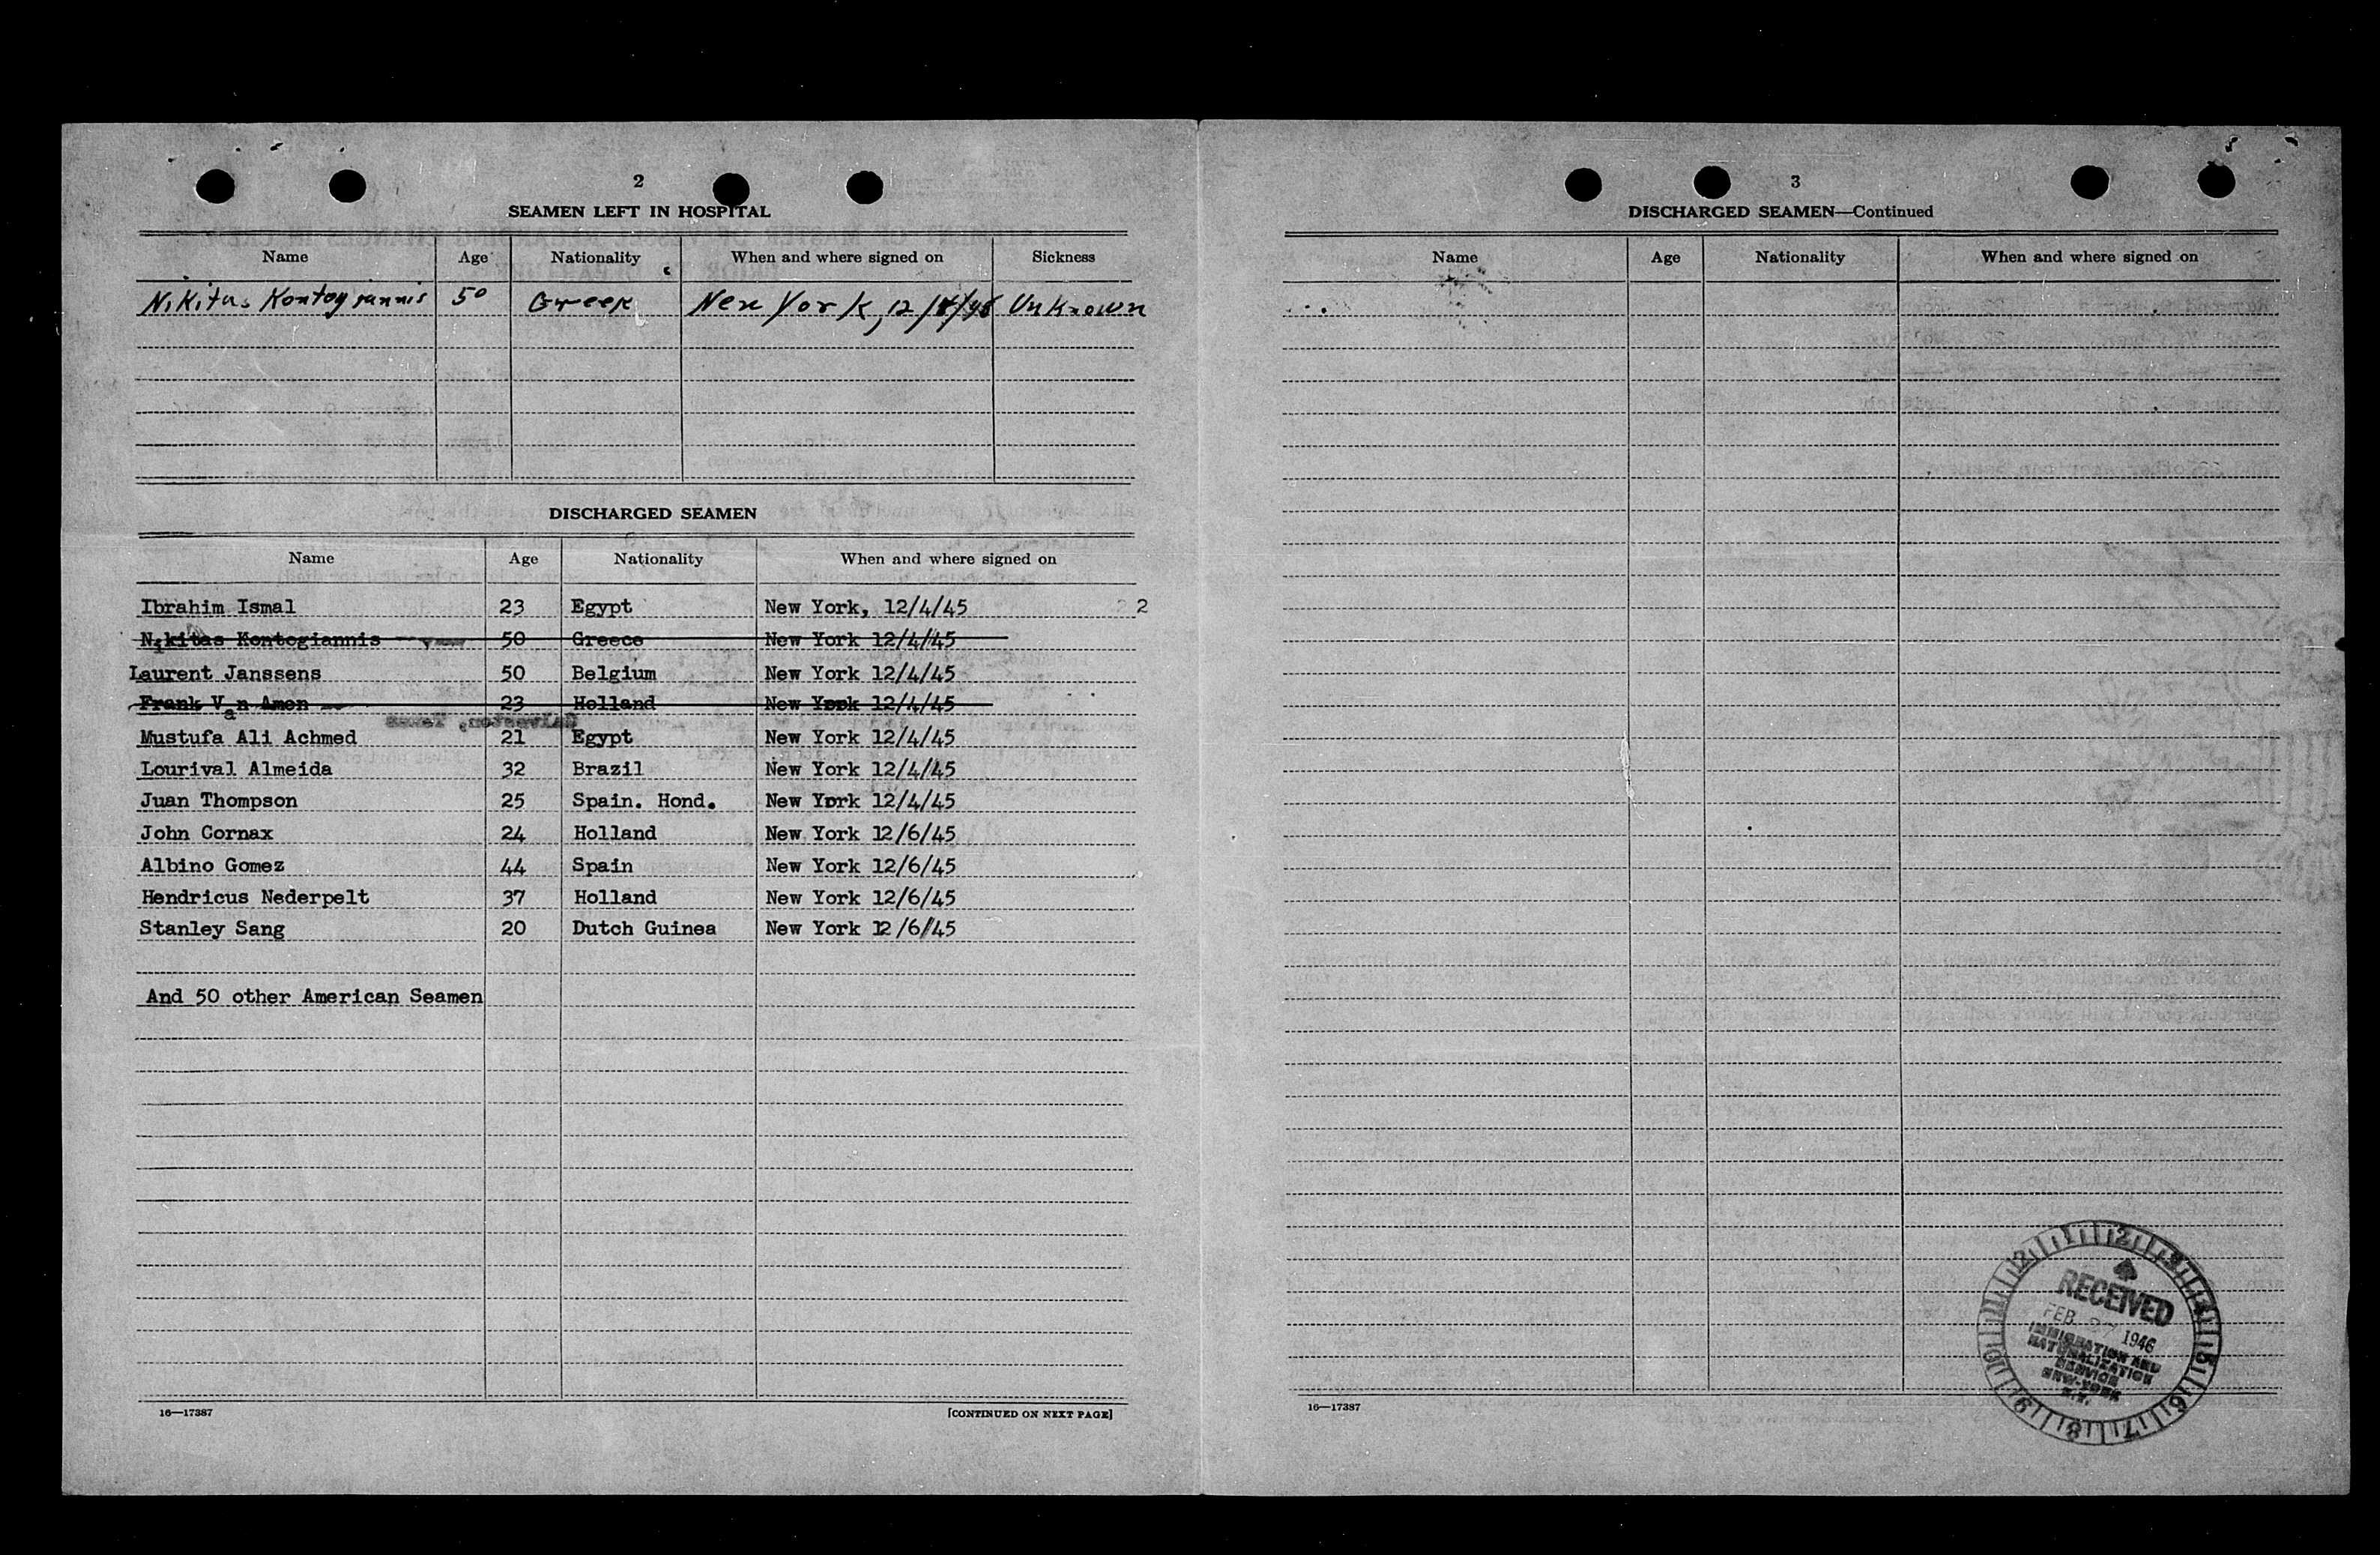 2
SEAMEN LEFT IN HOSPITAL
Name Age Nationality When and where signed on Sickness
Nikitas Kontogiannis 50 Greek New York, 12/4/45 Unknown
DISCHARGED SEAMEN
Name Age Nationality When and where signed on
Ibrahim Ismal 23 Egypt New York, 12/4/45 2
Nikitas Kontogiannis 50 Greece New York 12/4/45
Laurent Janssens 50 Belgium New York 12/4/45
Frank Van Amon 23 Holland New York 12/4/45
Galveston, Texas
Mustufa Ali Achmed 21 Egypt New York 12/4/45
Lourival Almeida 32 Brazil New York 12/4/45
Juan Thompson 25 Spain. Hond. New York 12/4/45
John Cornax 24 Holland New York 12/6/45
Albino Gomez 44 Spain New York 12/6/45
Hendricus Nederpelt 37 Holland New York 12/6/45
Stanley Sang 20 Dutch Guinea New York 12/6/45
And 50 other American Seamen
16—17387 [CONTINUED ON NEXT PAGE]
3
DISCHARGED SEAMEN—Continued
Name Age Nationality When and where signed on
RECEIVED
FEB 27 1946
IMMIGRATION AND
NATURALIZATION
SERVICE
NEW-YORK
N.Y.
1 2 3 4 5 6 7 8 9 10 11 12
16—17387